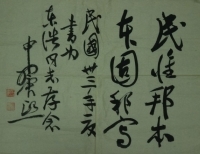 民惟邦本
本固邦寧
民國卅三年夏
書为
东浩同志存念